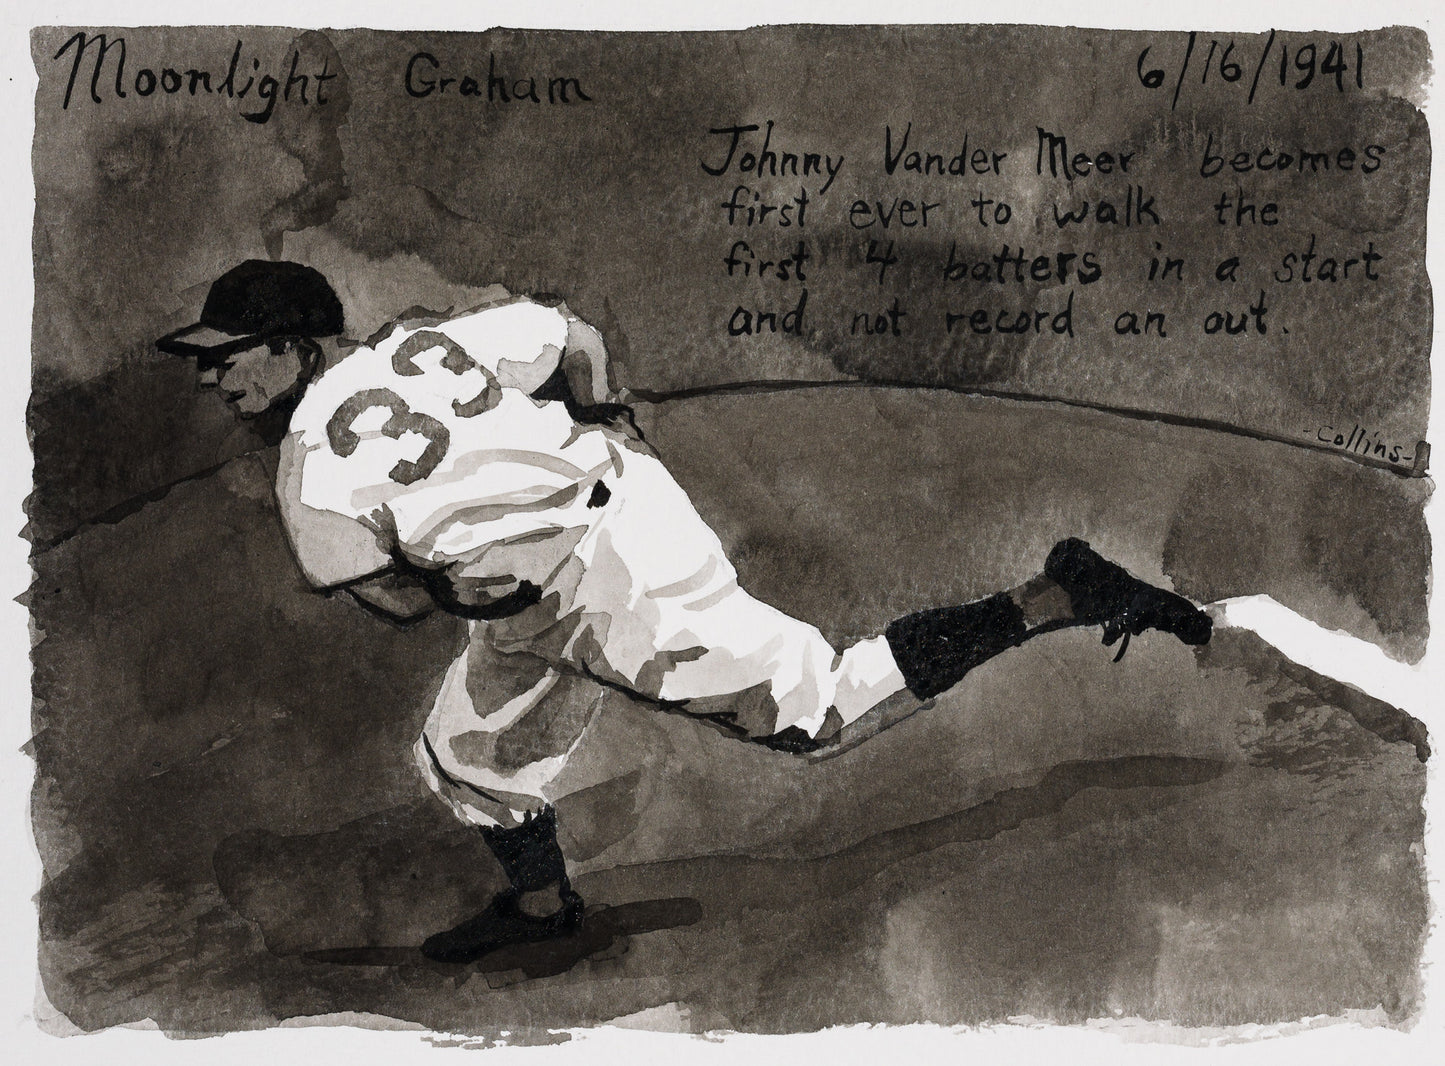 Moonlight Graham
6/16/1941
Johnny Vander Meer becomes
first ever to walk the
first 4 batters in a start
and not record an out.
33
-Collins-